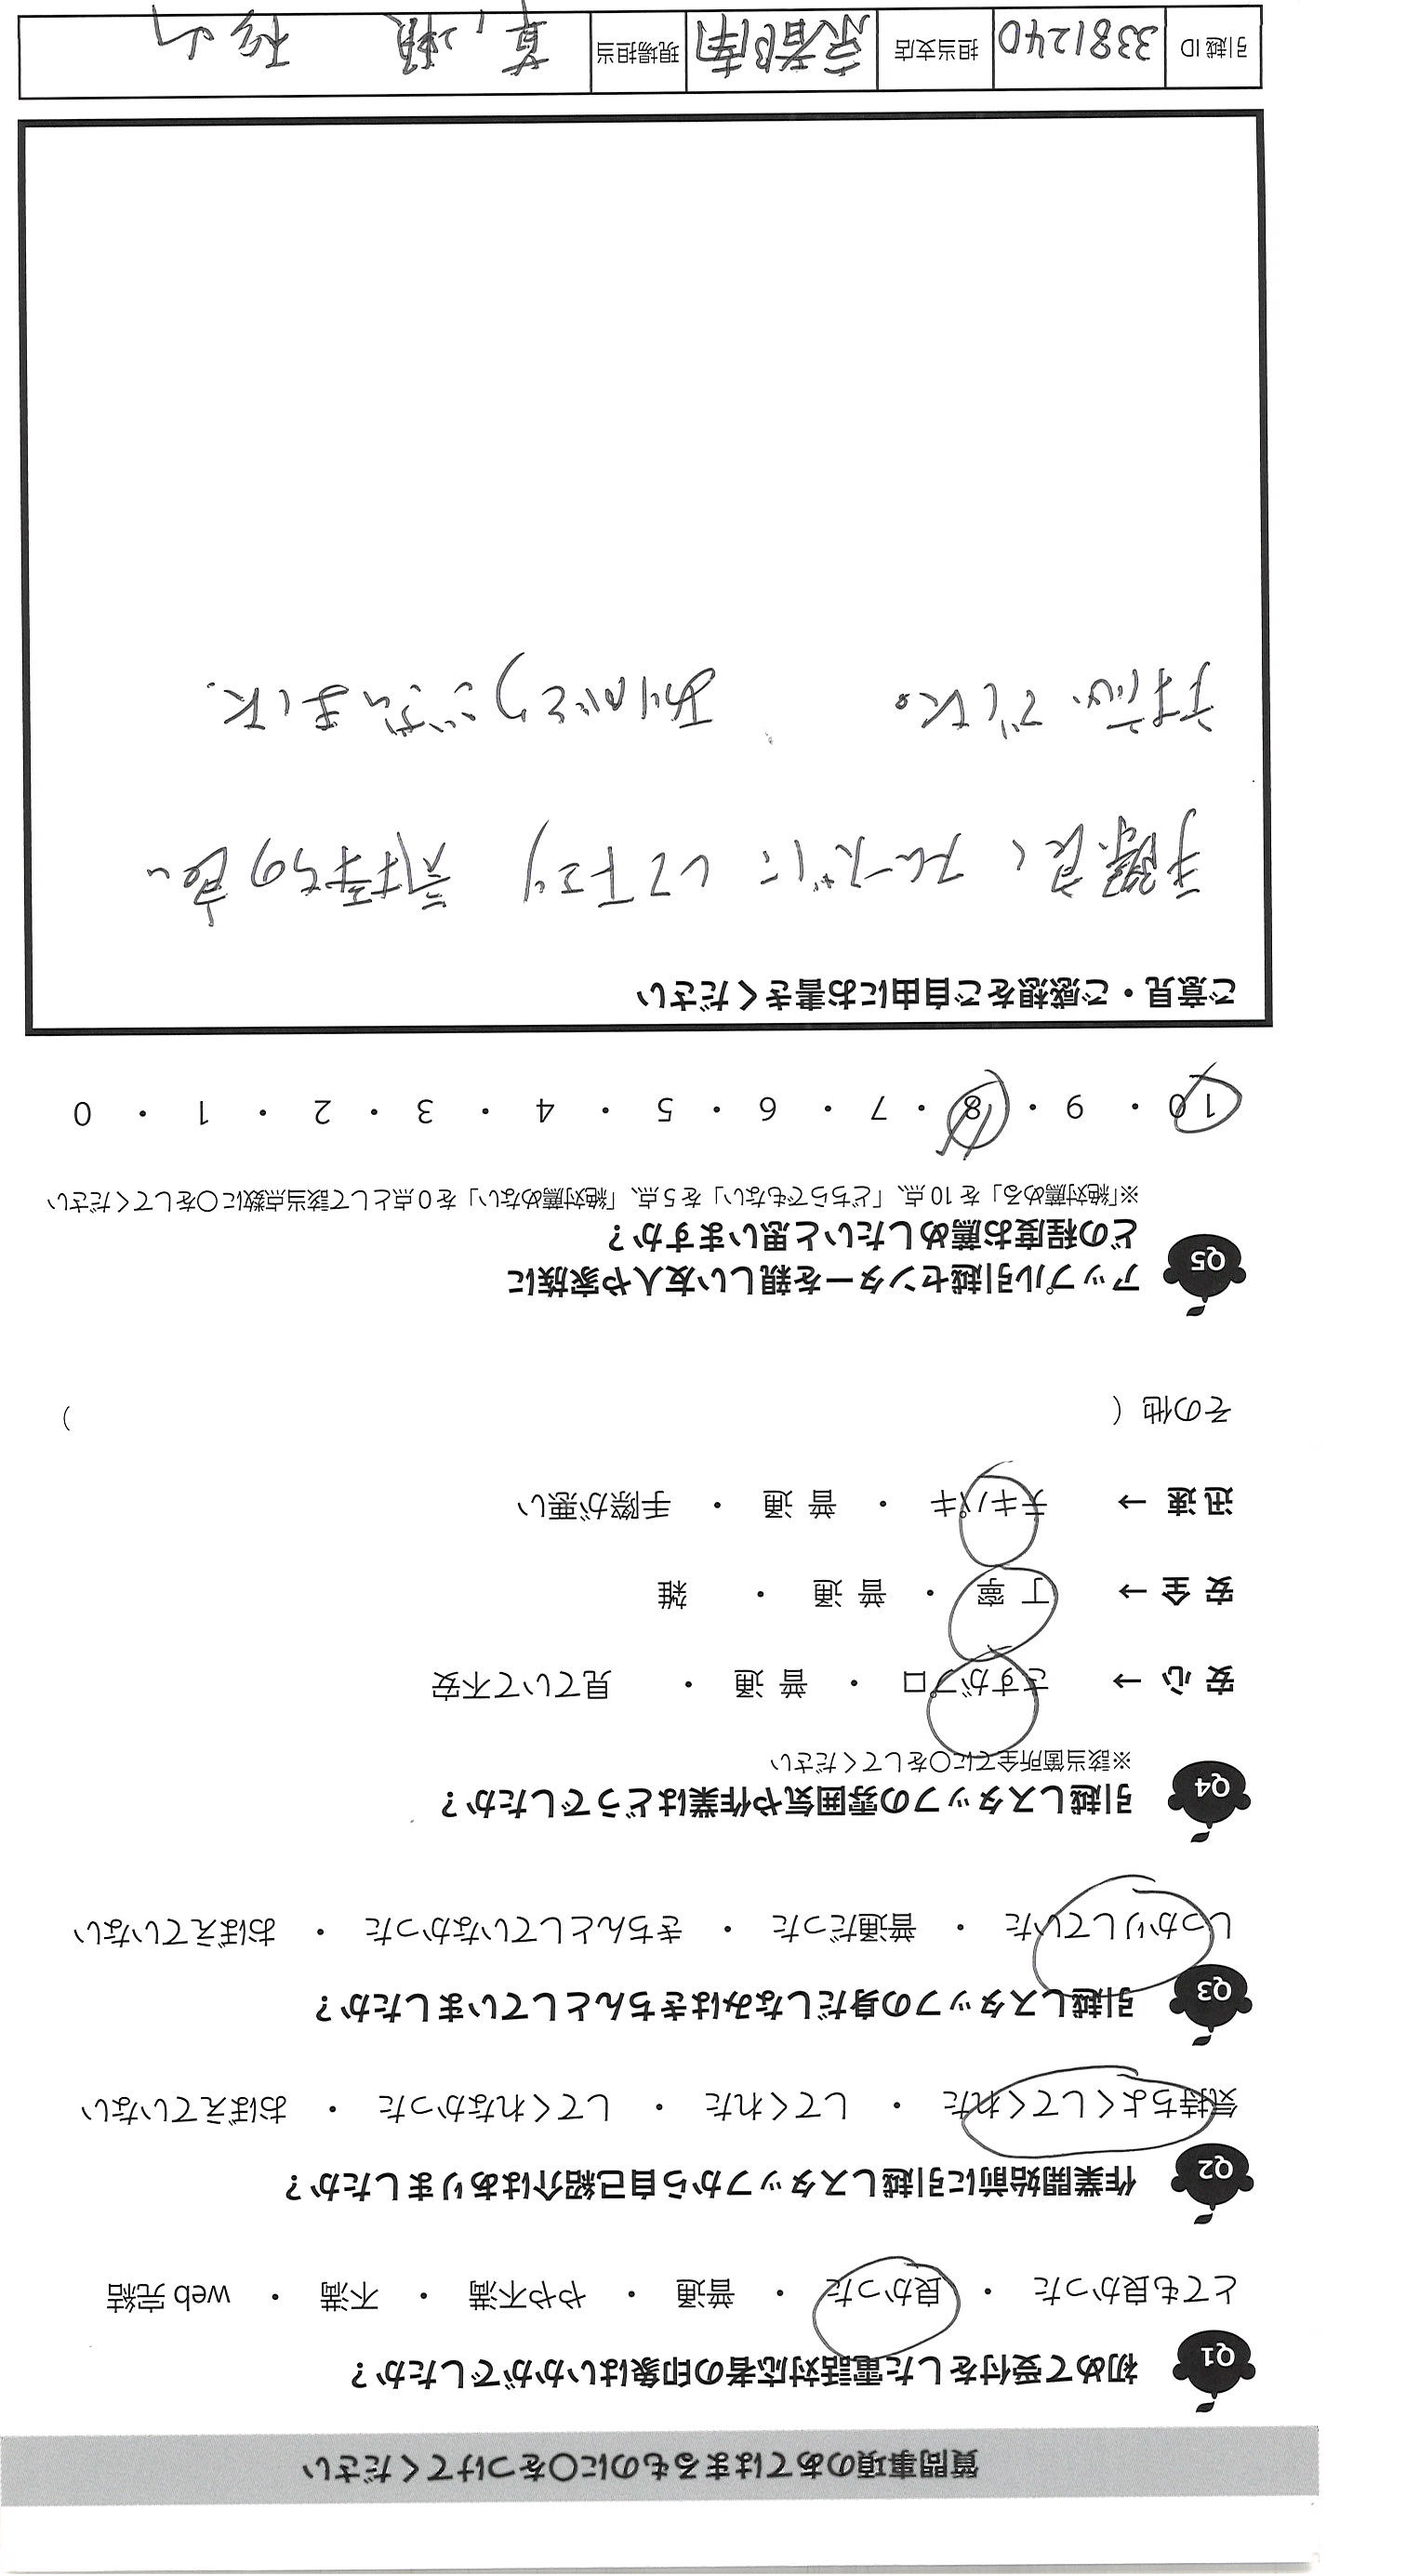 質問事項のあてはまるものに○をつけてください
Q1 初めて受付をした電話対応者の印象はいかがでしたか？
とても良かった ・ 良かった ・ 普通 ・ やや不満 ・ 不満 ・ web 完結
Q2 作業開始前に引越しスタッフから自己紹介はありましたか？
気持ちよくしてくれた ・ してくれた ・ してくれなかった ・ おぼえていない
Q3 引越しスタッフの身だしなみはきちんとしていましたか？
しっかりしていた ・ 普通だった ・ きちんとしていなかった ・ おぼえていない
Q4 引越しスタッフの雰囲気や作業はどうでしたか？
※該当箇所全てに○をしてください
安 心 → さすがプロ ・ 普 通 ・ 見ていて不安
安 全 → 丁 寧 ・ 普 通 ・ 雑
迅 速 → テキパキ ・ 普 通 ・ 手際が悪い
その他（ ）
Q5 アップル引越センターを親しい友人や家族に
どの程度お薦めしたいと思いますか？
※「絶対薦める」を 10 点、「どちらでもない」を 5 点、「絶対薦めない」を 0 点として該当点数に○をしてください
10 ・ 9 ・ 8 ・ 7 ・ 6 ・ 5 ・ 4 ・ 3 ・ 2 ・ 1 ・ 0
ご意見・ご感想をご自由にお書きください
手際良く スムーズに して下さり 気持ちの良い
対応でした。 ありがとうございました.
引越 ID 3381240 担当支店 京都南 現場担当 杉山